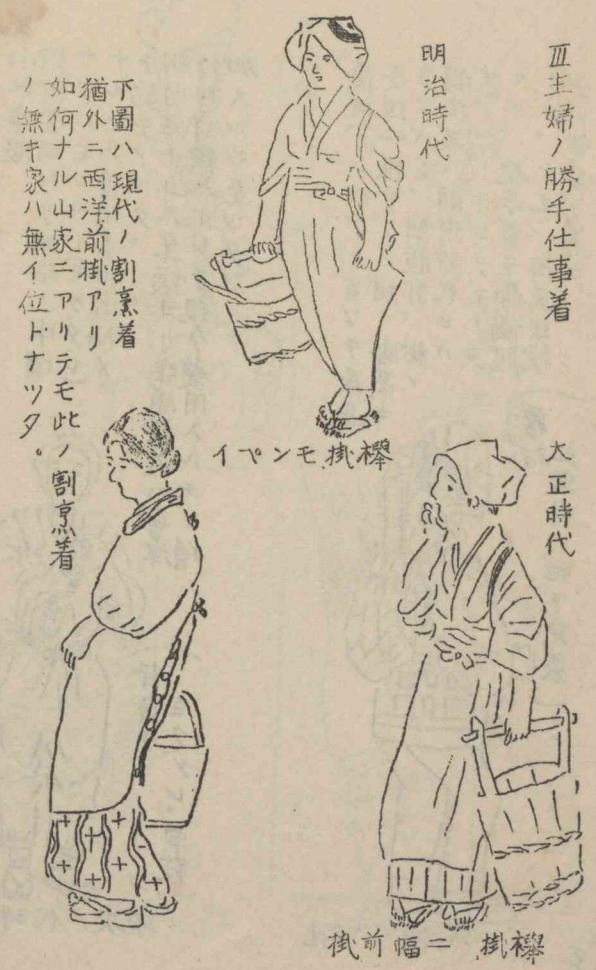 Ⅲ主婦ノ勝手仕事着
明治時代
襷掛モンペイ
大正時代
襷掛 二幅前掛
下圖ハ現代ノ割烹着
猶外ニ西洋前掛アリ
如何ナル山家ニアリテモ此ノ割烹着
ノ無キ家ハ無イ位トナツタ。